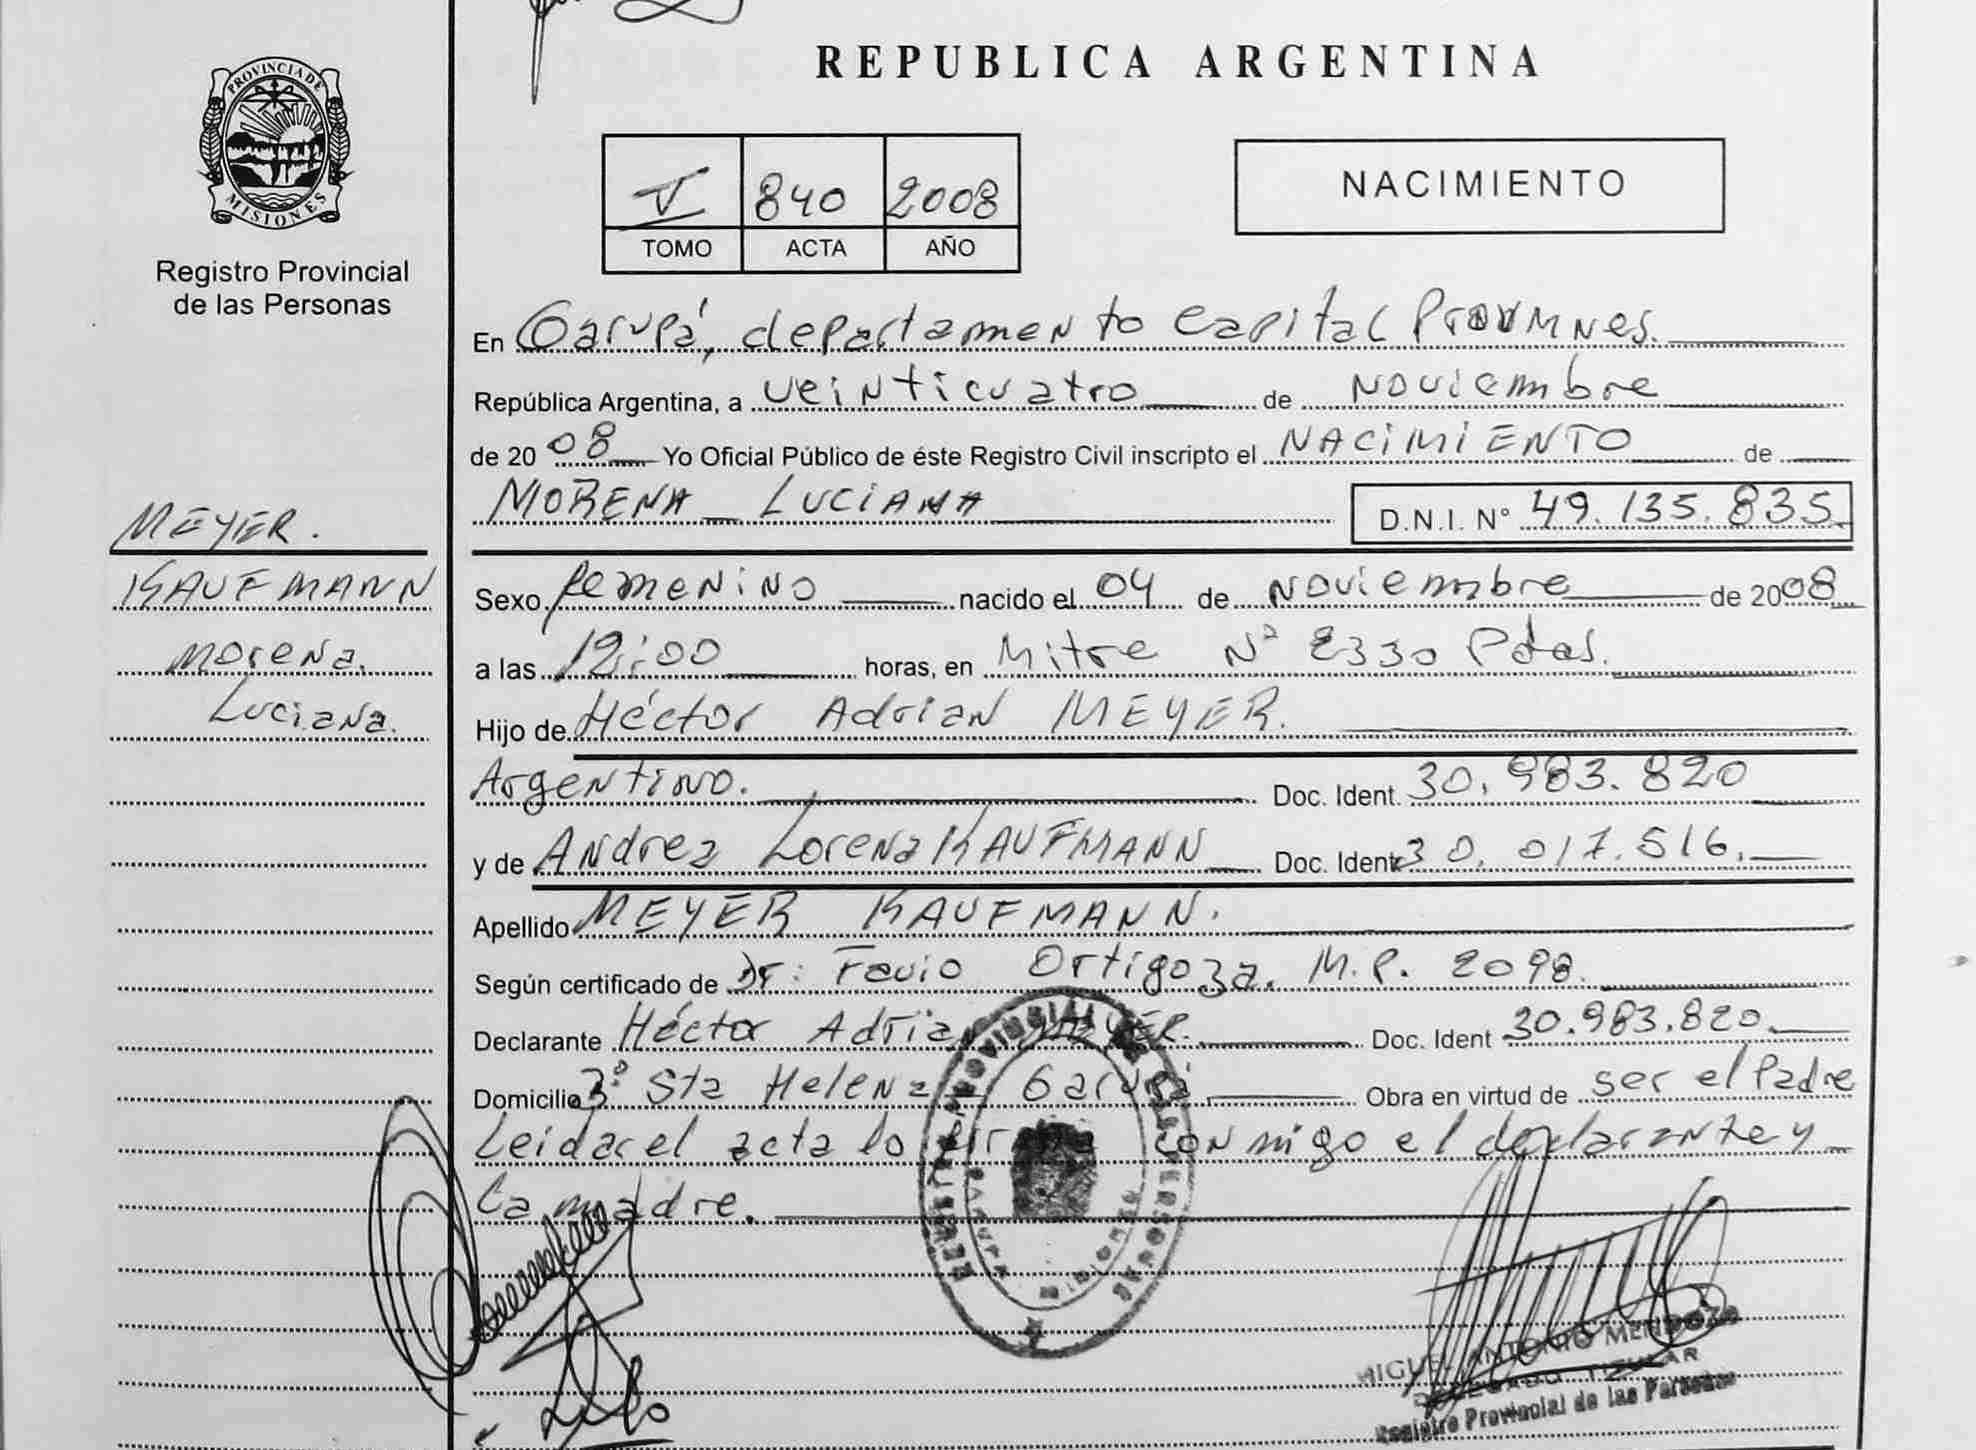 PROVINCIA DE
MISIONES
Registro Provincial
de las Personas
MEYER.
KAUFMANN
Morena.
Luciana.
REPUBLICA ARGENTINA
V 840 2008
TOMO ACTA AÑO
NACIMIENTO
En Garupá, departamento Capital
República Argentina, a veinticuatro de Noviembre
de 2008 Yo Oficial Público de éste Registro Civil inscripto el NACIMIENTO de
MORENA LUCIANA D.N.I. N° 49.135.835.
Sexo femenino nacido el 04 de Noviembre de 2008
a las 12:00 horas, en Mitre N° 2330 Pdas.
Hijo de Héctor Adrian MEYER.
Argentino. Doc. Ident. 30.983.820
y de Andrea Lorena KAUFMANN Doc. Ident. 30.017.516.
Apellido MEYER KAUFMANN.
Según certificado de Dr: Favio Ortigoza. M.P. 2098.
Declarante Héctor Adrian MEYER. Doc. Ident 30.983.820.
Domicilio 3° Sta Helena Garupá Obra en virtud de ser el Padre
Leida el acta lo firma conmigo el declarante y
La madre.
REGISTRO PROVINCIAL DE LAS PERSONAS
GARUPA MISIONES
MIGUEL ANTONIO MENDOZA
DELEGADO TITULAR
Registro Provincial de las Personas